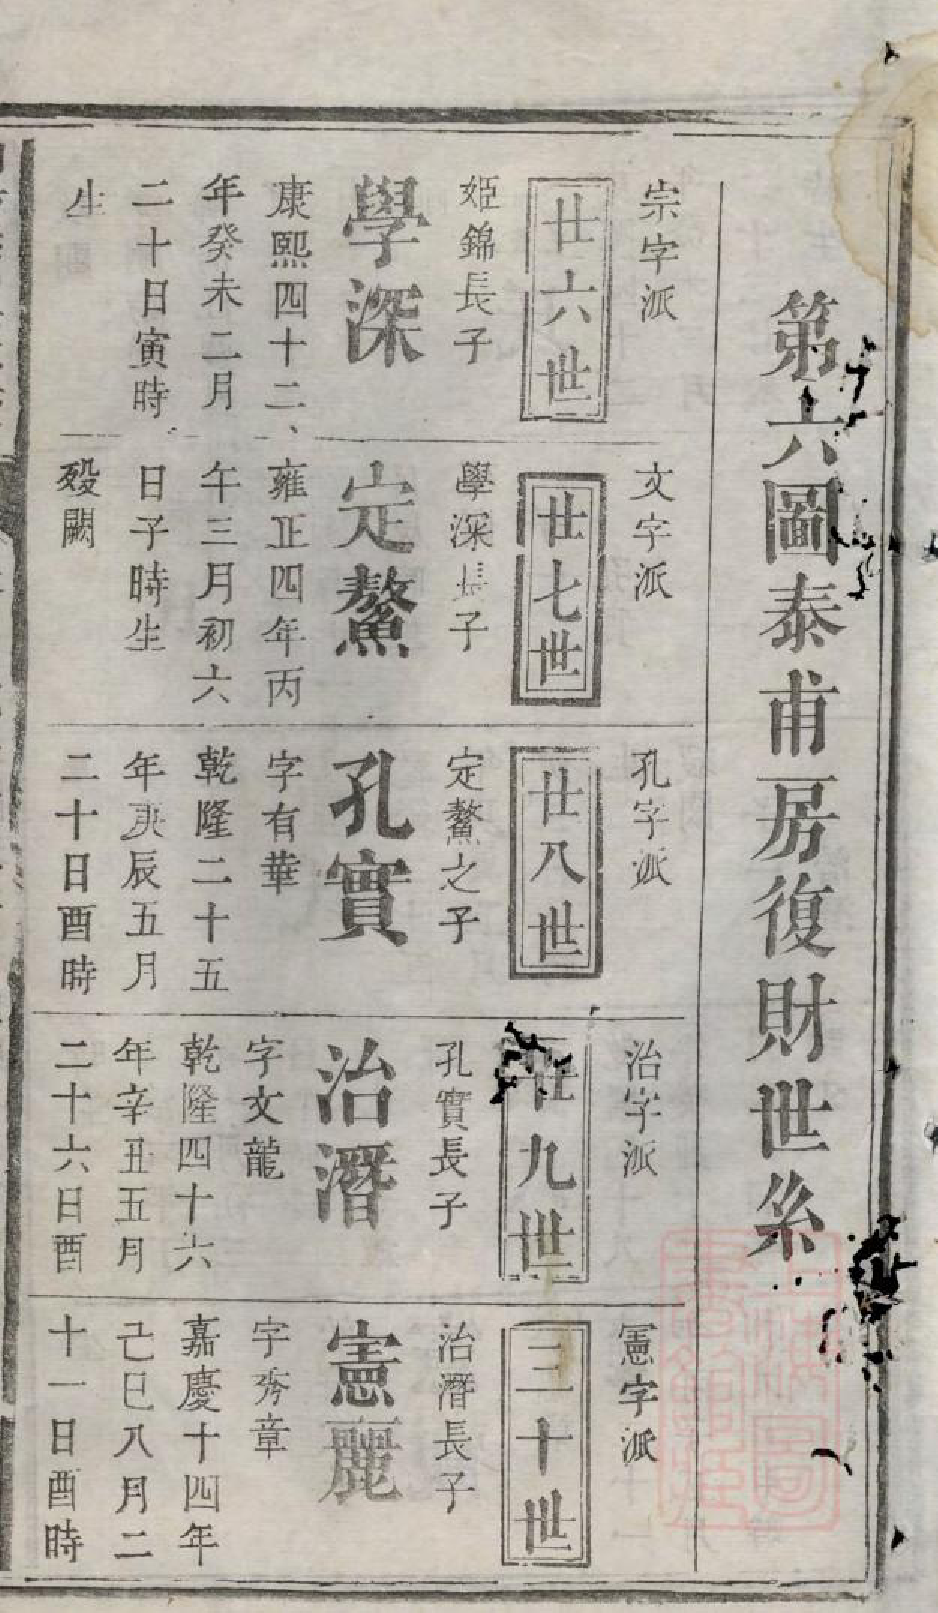 第六圖泰甫房復財世糸
宗字派
廿六世
姬錦長子
學深
康熙四十二、
年癸未二月
二十日寅時
生
文字派
廿七世
學深長子
定鰲
雍正四年丙
午三月初六
日子時生
歿闕
孔字派
廿八世
定鰲之子
孔實
字有華
乾隆二十五
年庚辰五月
二十日酉時
治字派
廿九世
孔實長子
治潛
字文龍
乾隆四十六
年辛丑五月
二十六日酉
憲字派
三十世
治潛長子
憲麗
字秀章
嘉慶十四年
己巳八月二
十一日酉時